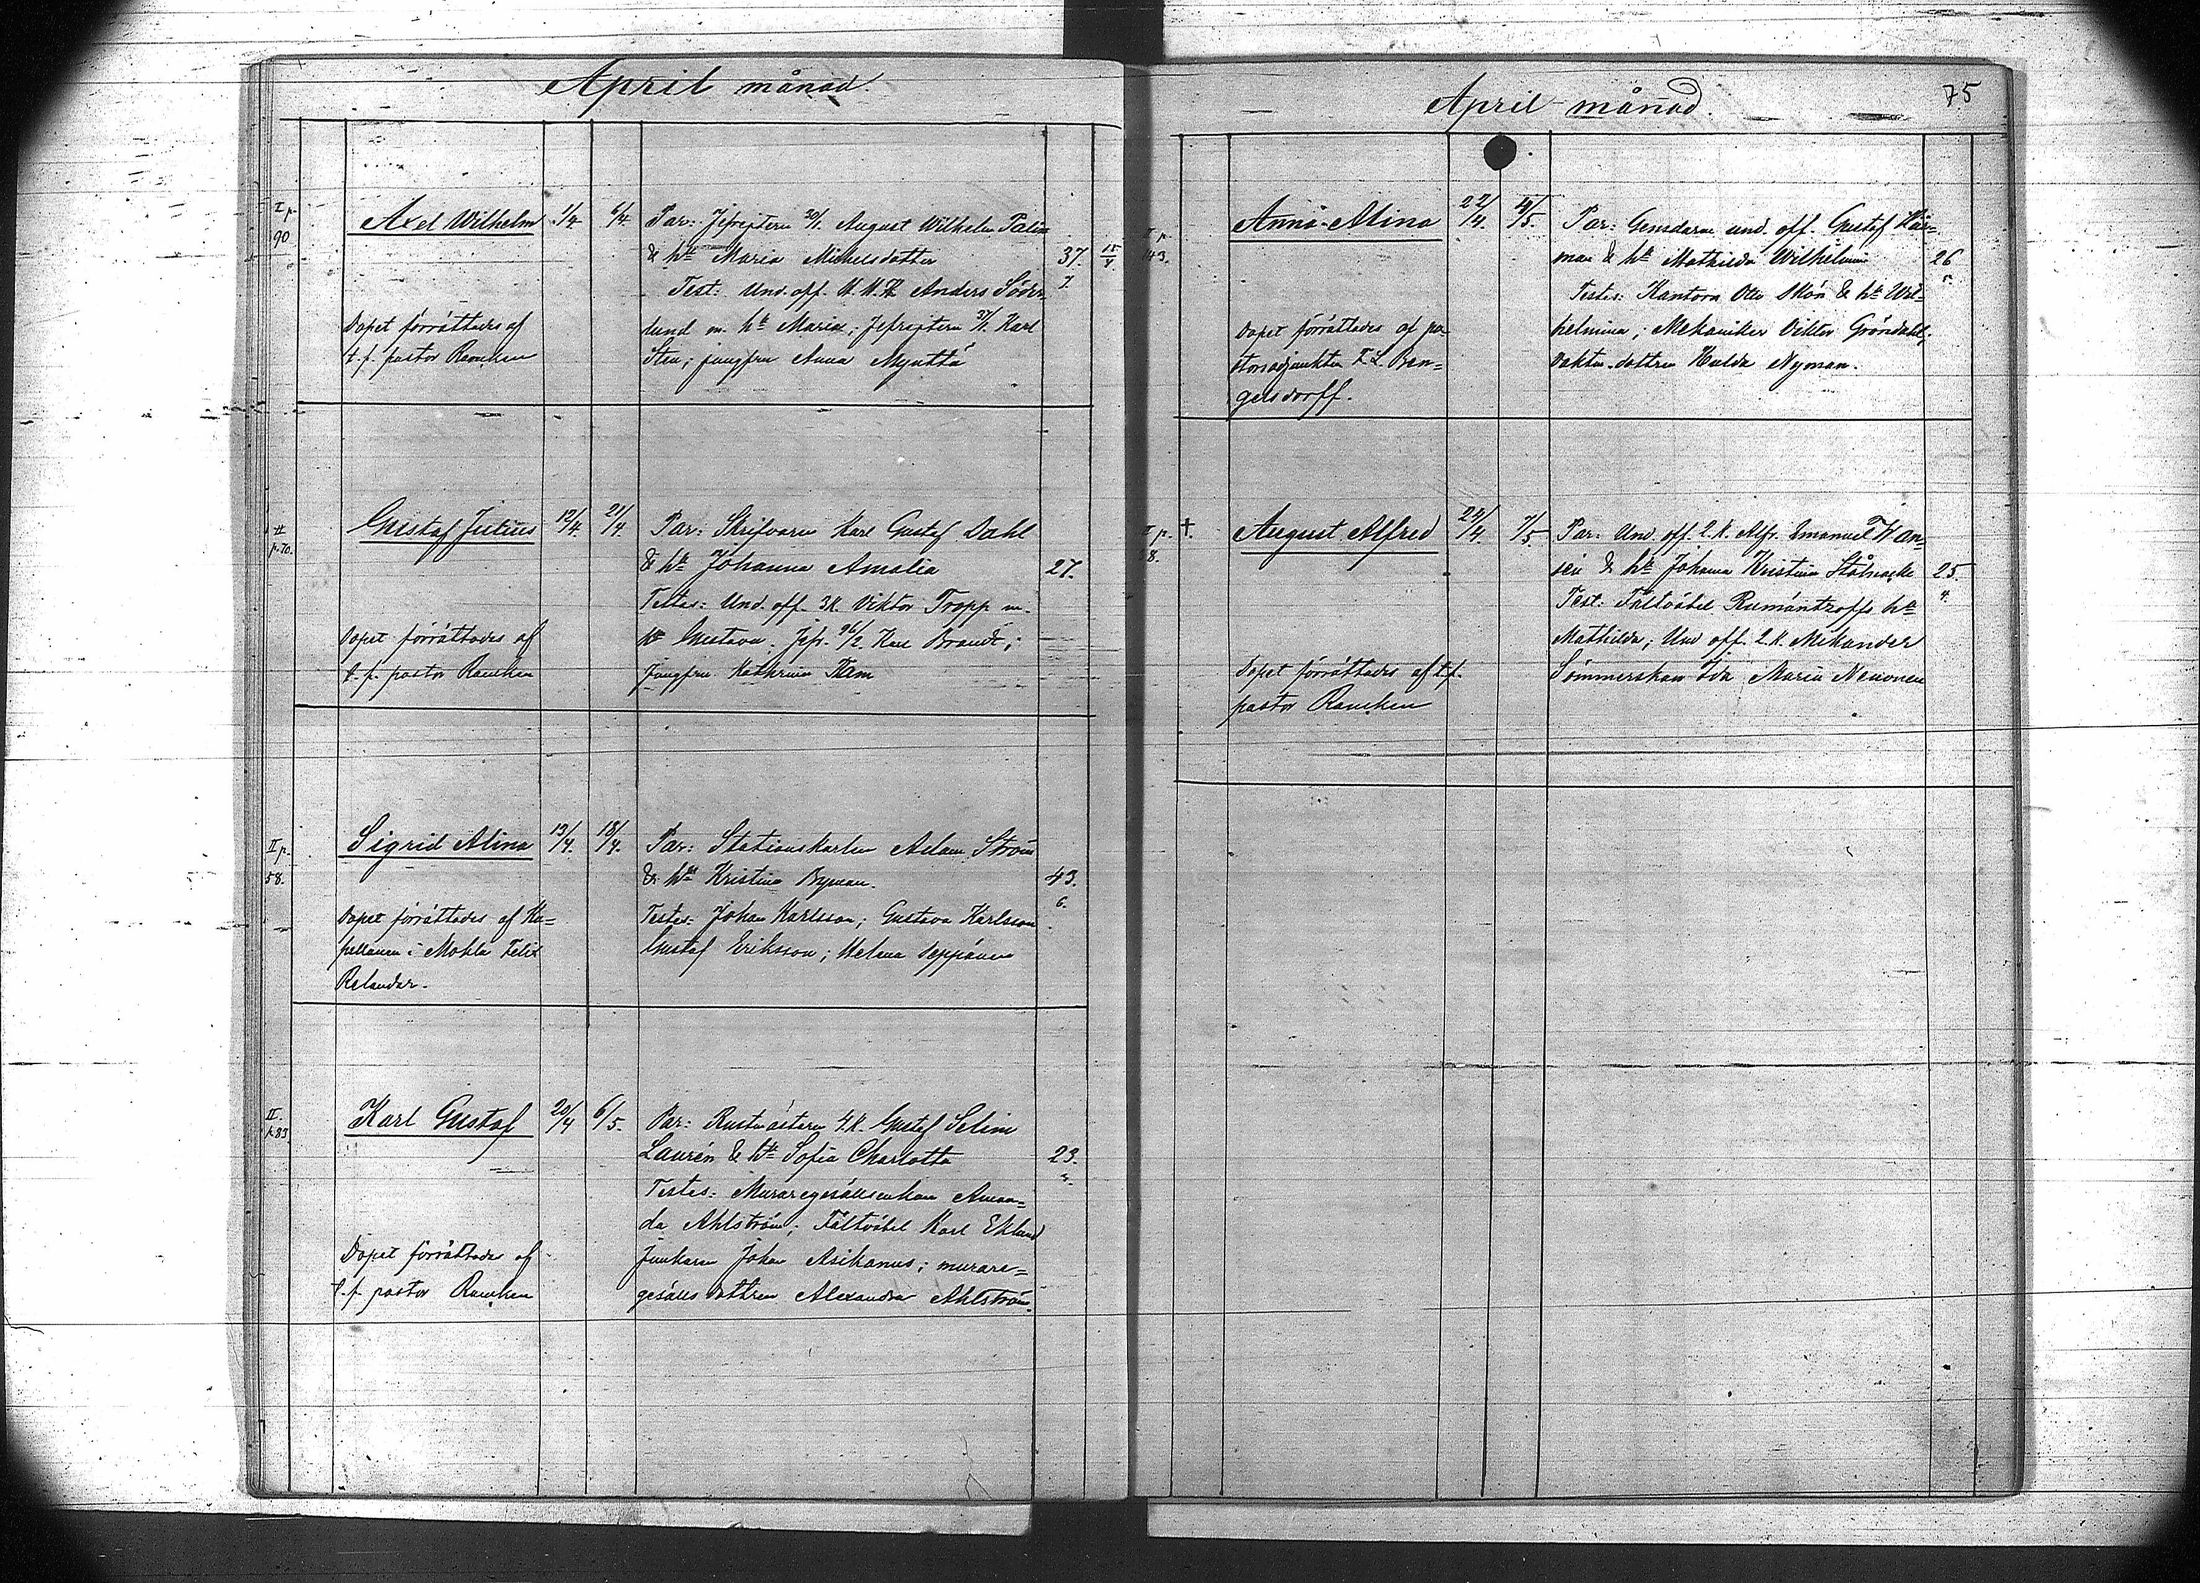 April månad.
I p.
90
Axel Wilhelm
1/4.
6/4.
Par: Jefrejtern 30/1. August Wilhelm Palin
& h. Maria Mickelsdotter
37.
7.
15/4
Test: Und. off. Anders Söder-
lund m. h. Maria; Jefrejtern 31/1. Karl
Sten; jungfru Anna Mynttö
Dopet förrättades af
t. f. pastor Ramken
II
p. 70.
Gustaf Julius
12/4.
21/4.
Par: Skrifvaren Karl Gustaf Dahl
& h. Johanna Amalia
27.
Testes: Und. off. 3 K. Viktor Tropp m.
h. Gustava. Jefr. 96/2. Karl Brandt;
Jungfru Kathrina Flem
Dopet förrättades af
t. f. pastor Ramken
II p.
58.
Sigrid Alina
13/4.
18/4.
Par: Stationskarlen Adam Ström
& h. Kristina Byman.
43.
6.
Testes: Johan Karlsson; Gustava Karlsson
Gustaf Eriksson; Helena Seppänen
Dopet förrättades af Ka-
pellanen i Mohla Felix
Relander.
II
p. 83
Karl Gustaf
20/4
6/5.
Par: Rustmästaren 4. K. Gustaf Selim
Laurén & h. Sofia Charlotta
23.
Testes: Muraregesällsenkan Aman-
da Ahlström; Fältväbel Karl Eklund
Junkaren Johan Asikanus; murare-
gesälls dottren Alexandra Ahlström.
Dopet förrättades af
t. f. pastor Ramken
April månad.
75
II p.
143.
Anna Alina
22/4
4/5.
Par: Gensdarm und. off. Gustaf
man & h. Mathilda Wilhelmina
26
Testes: Kantorn Otto Skön & h. Wil-
helmina; Mekaniker Viktor Gröndahl;
Vaktm. dottren Hulda Nyman.
Dopet förrättades af pa-
storsadjunkten F. L. Ben-
gelsdorff.
II p.
38.
†.
August Alfred
24/4
7/5.
Par: Und. off. 2. K. Alfr. Emanuel
& h. Johanna Kristina Stålnacke
25.
4.
Test: Fältväbel Rumäntzoffs h.
Mathilda; Und off. 2. K. Mekander
Sömmerskan Ida Maria Neuvonen
Dopet förrättades af t. f.
pastor Ramken